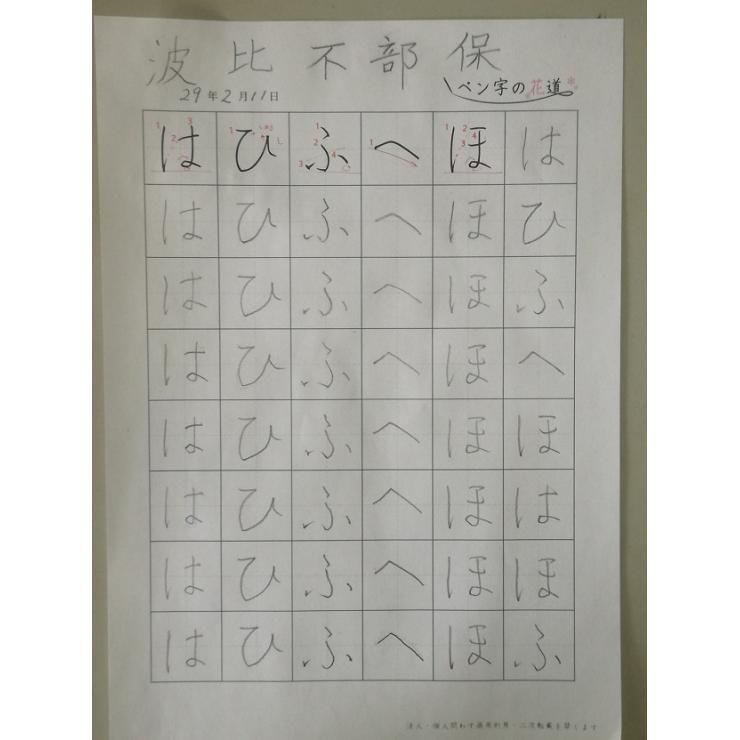 波比不部保
29年2月11日 ペン字の花道
は ひ ふ へ ほ は
は ひ ふ へ ほ ひ
は ひ ふ へ ほ ふ
は ひ ふ へ ほ へ
は ひ ふ へ ほ ほ
は ひ ふ へ ほ は
は ひ ふ へ ほ ほ
は ひ ふ へ ほ ふ
法人・個人問わず商用利用・二次転載を禁じます